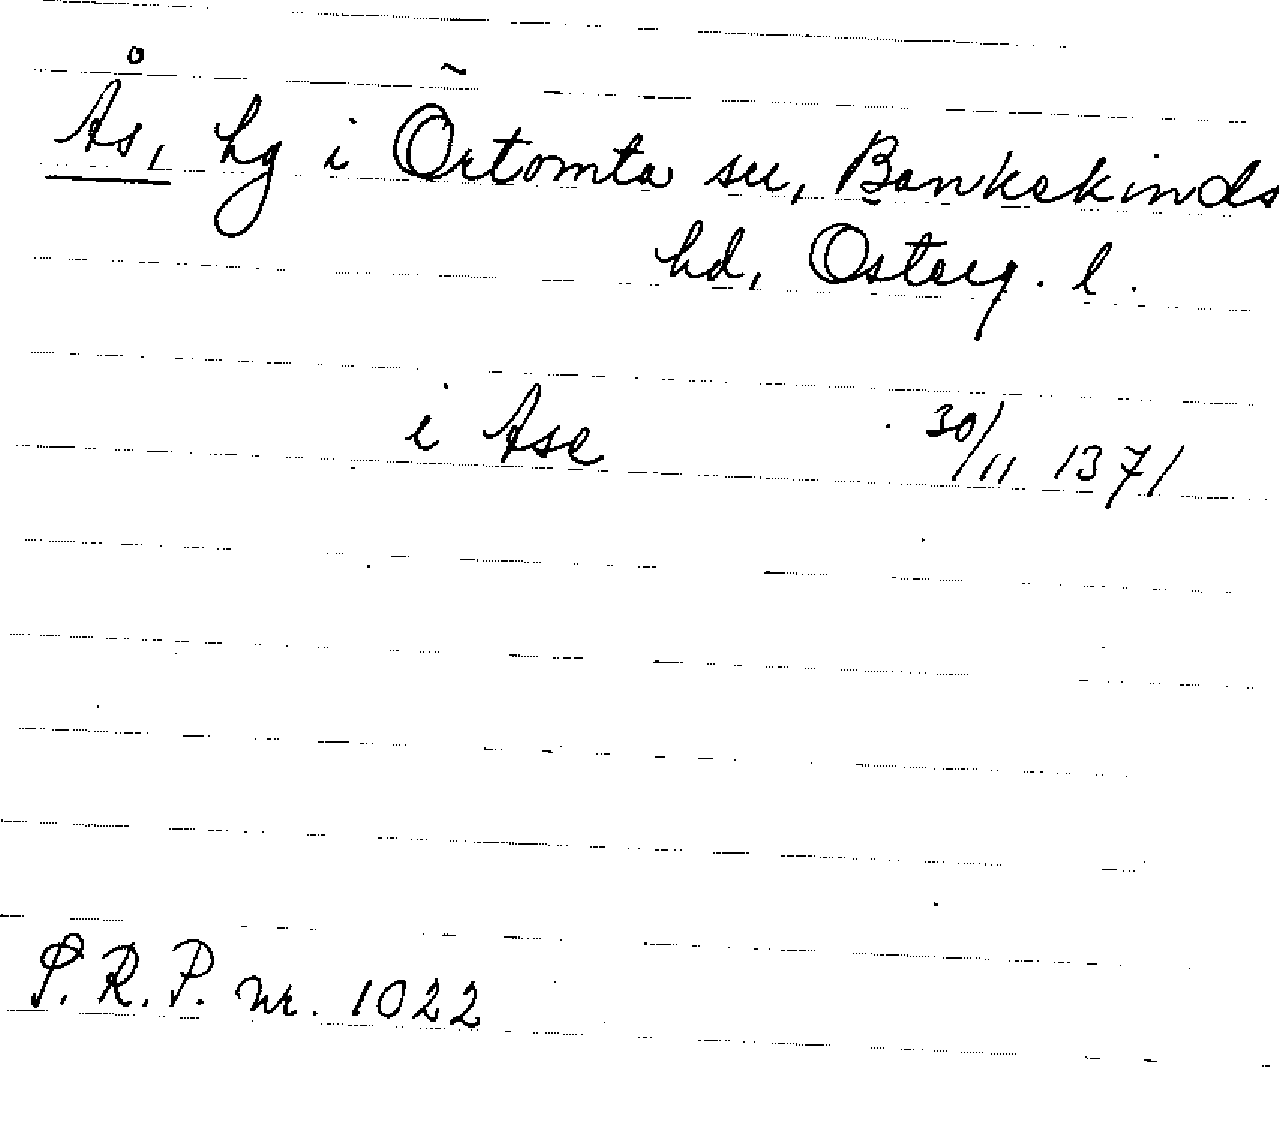 Ås, hg i Örtomta sn, Bankekinds
hd, Österg. l.
i Ase 30/11 1371
S.R.P. nr. 1022